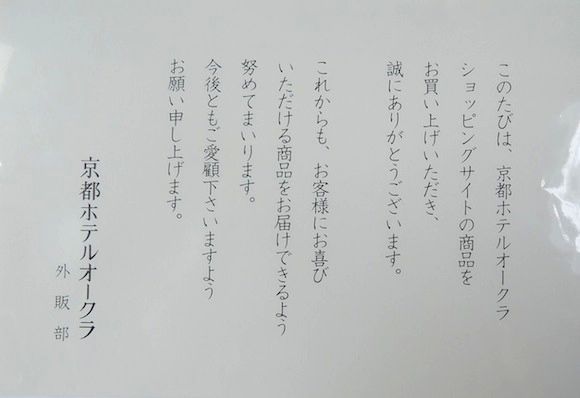 このたびは、京都ホテルオークラ
ショッピングサイトの商品を
お買い上げいただき、
誠にありがとうございます。
これからも、お客様にお喜び
いただける商品をお届けできるよう
努めてまいります。
今後ともご愛顧下さいますよう
お願い申し上げます。
京都ホテルオークラ
外販部